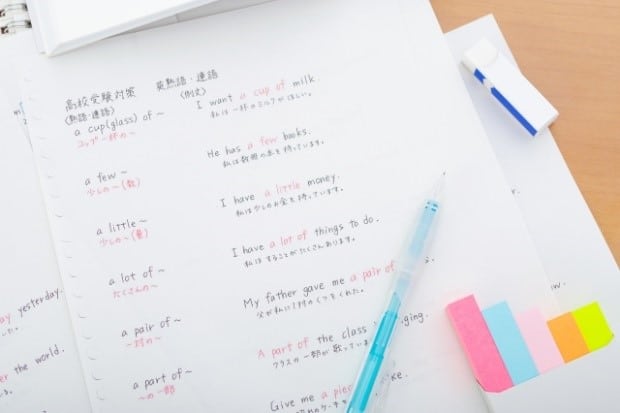 高校受験対策 英熟語・連語
(熟語・連語) (例文)
a cup(glass) of ~ I want a cup of milk.
コップ一杯の~ 私は一杯のミルクがほしい。
a few ~ He has a few books.
少しの~(数) 私は数冊の本を持っています。
a little ~ I have a little money.
少しの~(量) 私は少しのお金を持っています。
a lot of ~ I have a lot of things to do.
たくさんの~ 私はすることがたくさんあります。
a pair of ~ My father gave me a pair of
一対の~ 父が私に1対のくつをくれた。
a part of ~ A part of the class nging.
~の一部 クラスの一部が歌ってい
Give me a pie ke.
ay yesterday.
er the world.